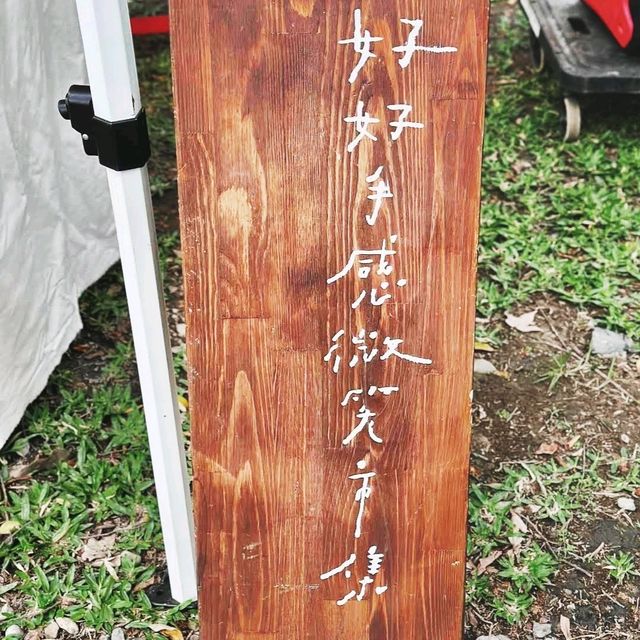 好好手感微笑市集